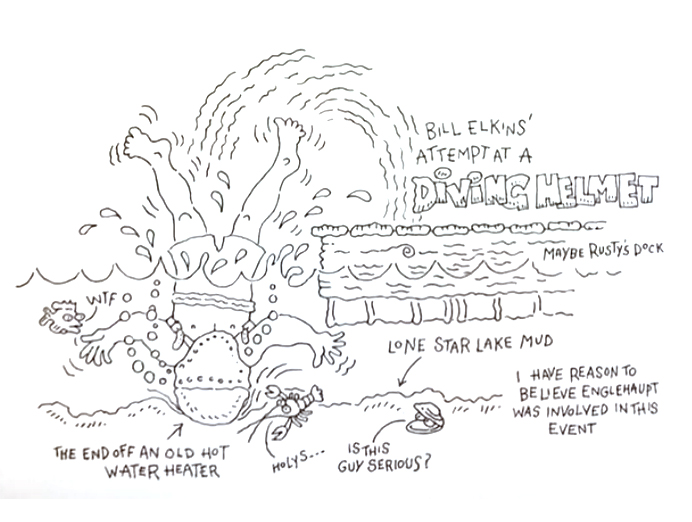 BILL ELKINS'
ATTEMPT AT A
DIVING HELMET
MAYBE RUSTY'S DOCK
WTF
LONE STAR LAKE MUD
I HAVE REASON TO
BELIEVE ENGLEHAUPT
WAS INVOLVED IN THIS
EVENT
THE END OFF AN OLD HOT
WATER HEATER
HOLY S...
IS THIS
GUY SERIOUS?